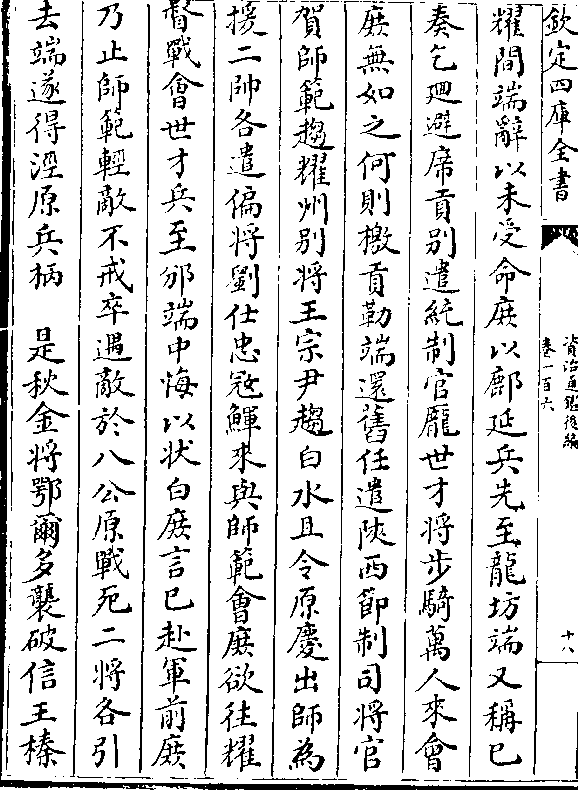 欽定四庫全書
資治通鑑後編
卷一百六
十八
耀間端辭以未受命庶以鄜延兵先至龍坊端又稱已
奏乞廻避席貢别遣統制官龐世才將步騎萬人來會
庶無如之何則檄貢勒端還舊任遣陜西節制司將官
賀師範趨耀州别將王宗尹趨白水且令原慶出師為
援二帥各遣偏將劉仕忠冦鯶來與師範會庶欲往耀
督戰會世才兵至邠端中悔以狀白庶言已赴軍前庶
乃止師範輕敵不戒卒遇敵於八公原戰死二將各引
去端遂得涇原兵柄　是秋金將鄂爾多襲破信王榛